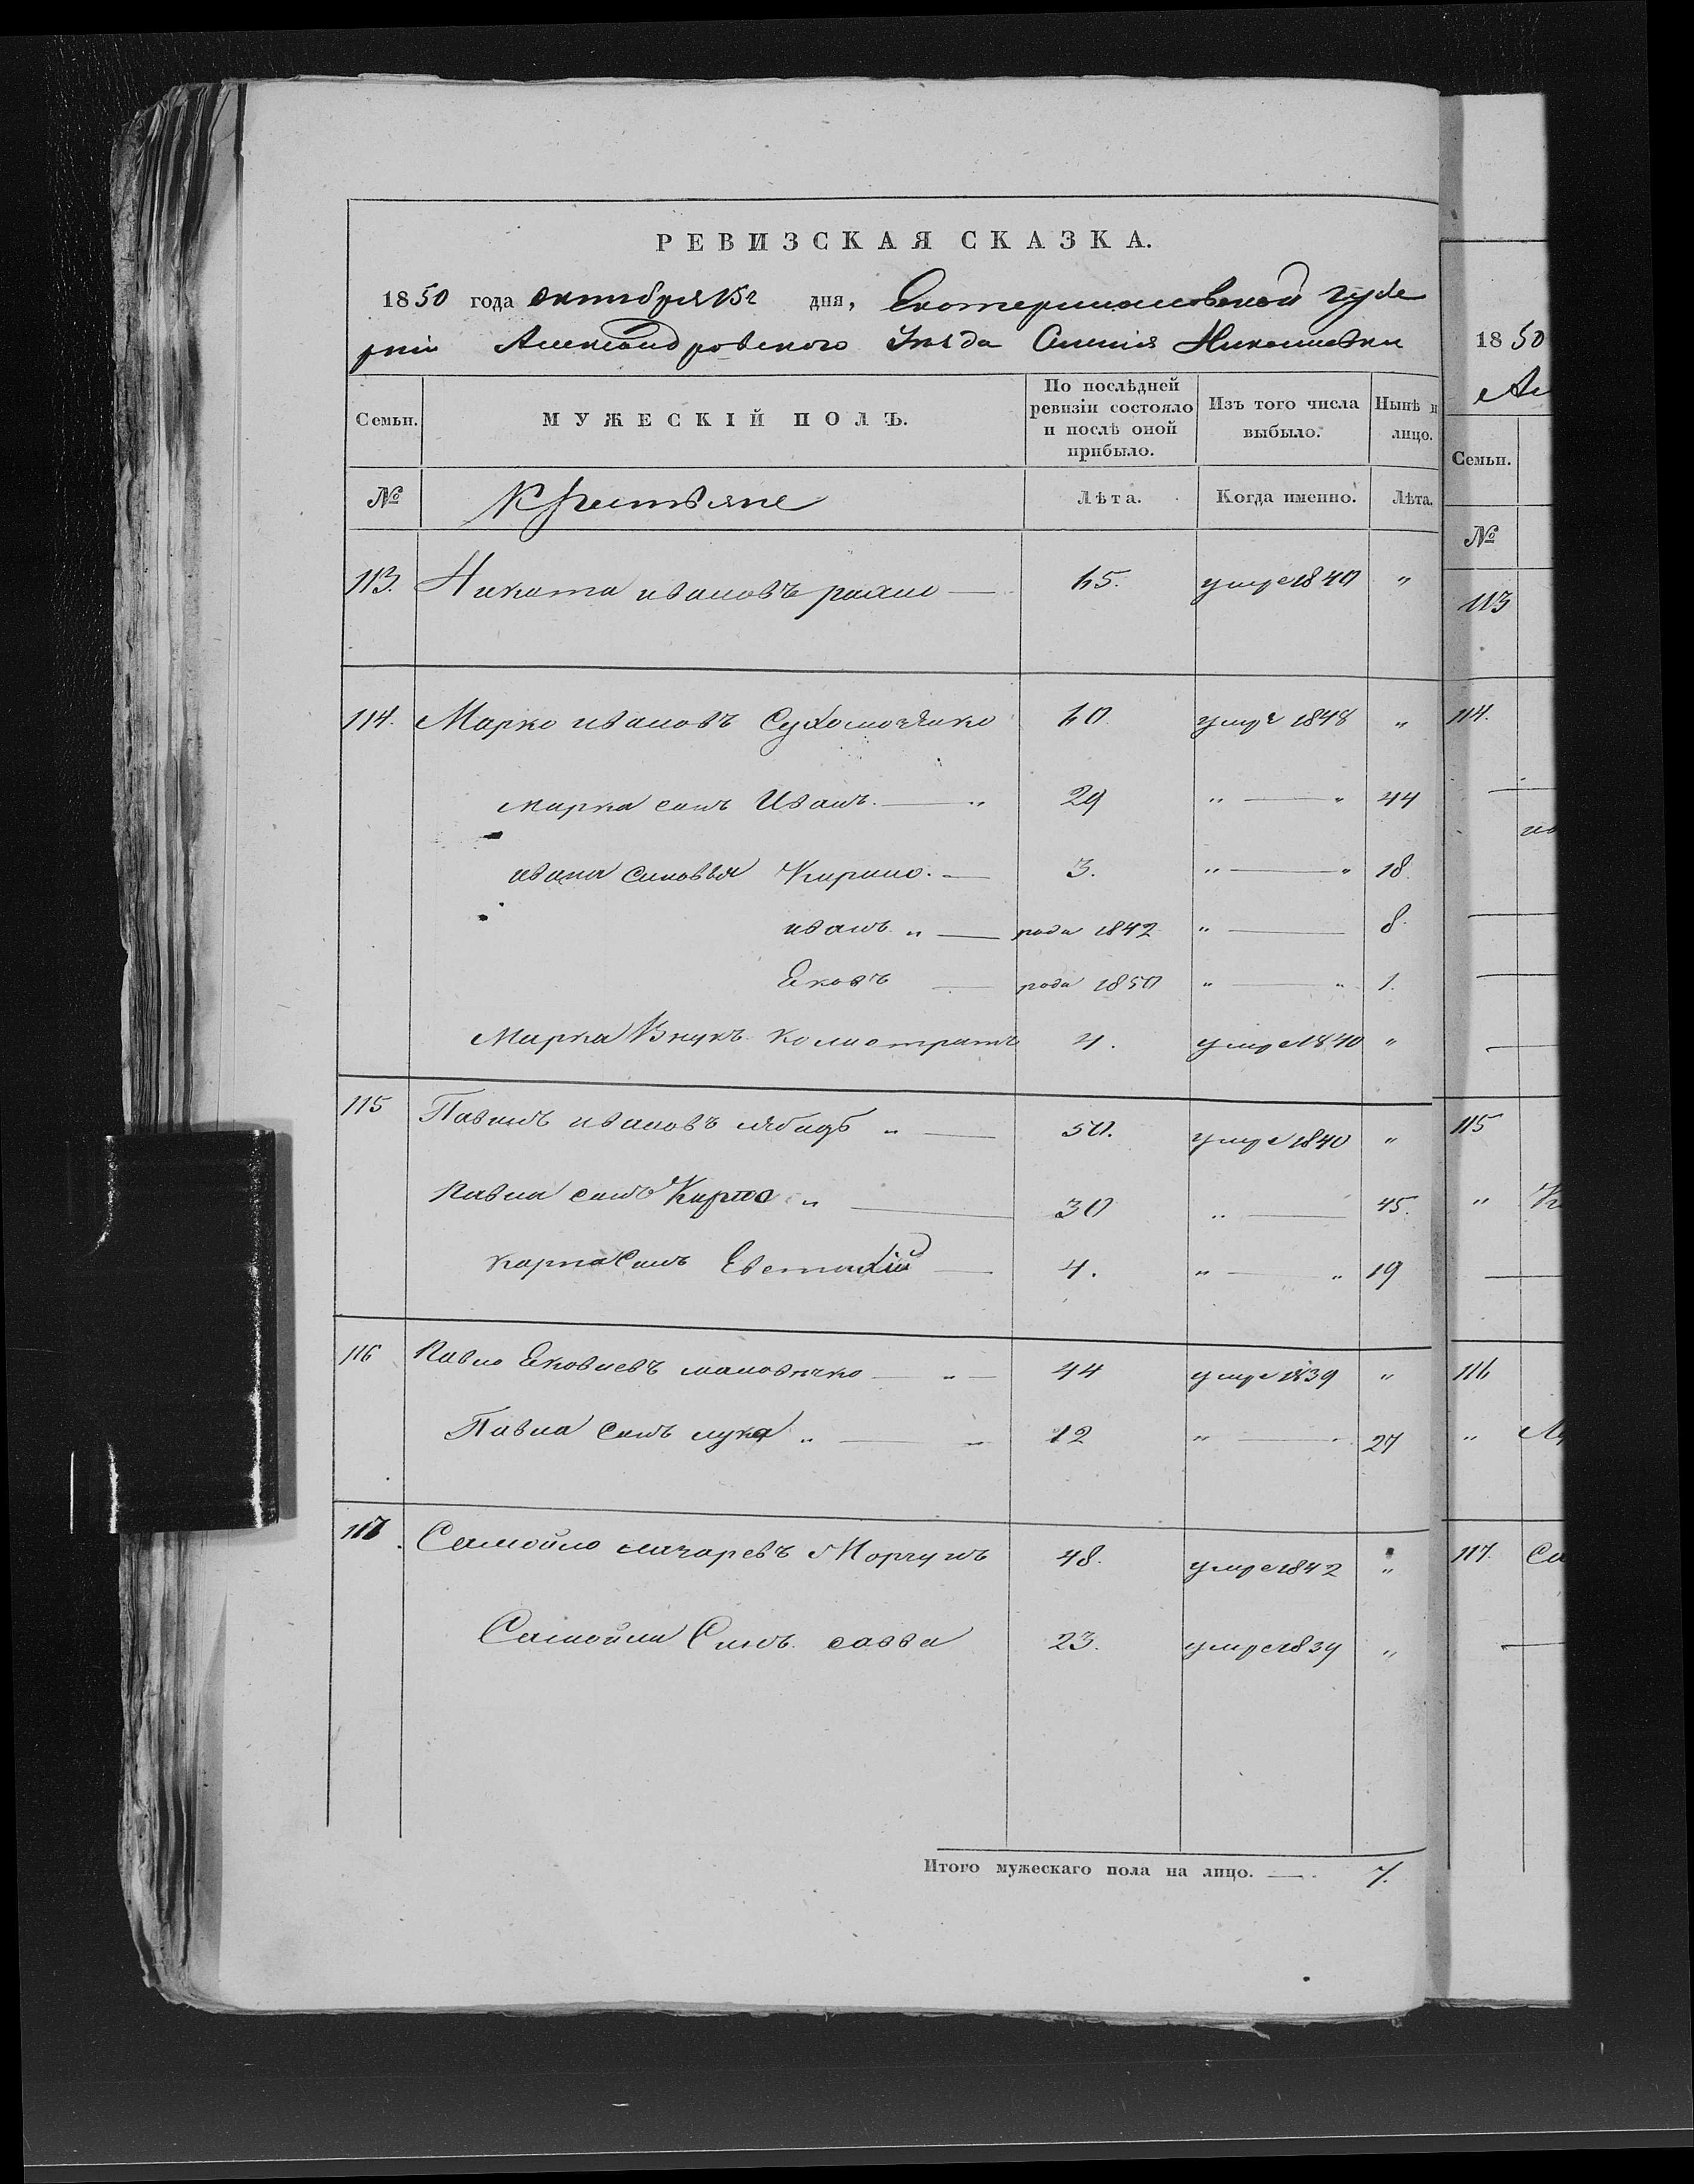 РЕВИЗСКАЯ СКАЗКА.
1850 года октября 15г дня, Екатеринославской губе
рніи Александровского уезда Николаевки
Семьи. МУЖЕСКІЙ ПОЛЪ. По послѣдней ревизіи состояло и послѣ оной прибыло. Изъ того числа выбыло. Нынѣ н лицо.
№ Крестьяне Лѣта. Когда именно. Лѣта.
113. Никита ивановъ рахно — 65. умре 1840 "
114. Марко ивановъ 60. умре 1848 "
марка синъ Иванъ. — " 29 " — " 44
ивана синовья Кирило. — 3. " — " 18.
иванъ " — рода 1842 " — 8.
Яковъ — рода 1850 " — " 1.
Марка Внукъ калистратъ 4. умре 1840 "
115 Павилъ ивановъ " — 50. умре 1840 "
Павла синъ Карпо " — 30 " — 45.
карпа Синъ Евстахій — 4. " — " 19
116 Павло Яковлевъ — " — 44 умре 1839 "
Павла Синъ лука " — " 12 " — " 27
117. Самойло Моргунъ 48. умре 1842 "
Самойла Синъ савва 23. умре 1839 "
Итого мужескаго пола на лицо. — 7.
1850
Ал
Семьи.
№
113
114.
115
" К
116
" Лу
117. Са